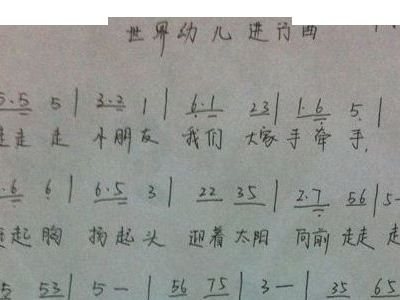 世界幼儿进行曲
5.5 5 | 3.2 1 | 6.1 23 | 1.6 5 |
走走 走 小朋友 我们 大家 手牵 手,
.6 6 | 6.5 3 | 22 35 | 2.7 56 | 5-
起 胸 扬起 头 迎着 太阳 向前 走走 走
5 53 | 5 — | 56 75 | 3 — | 35 65